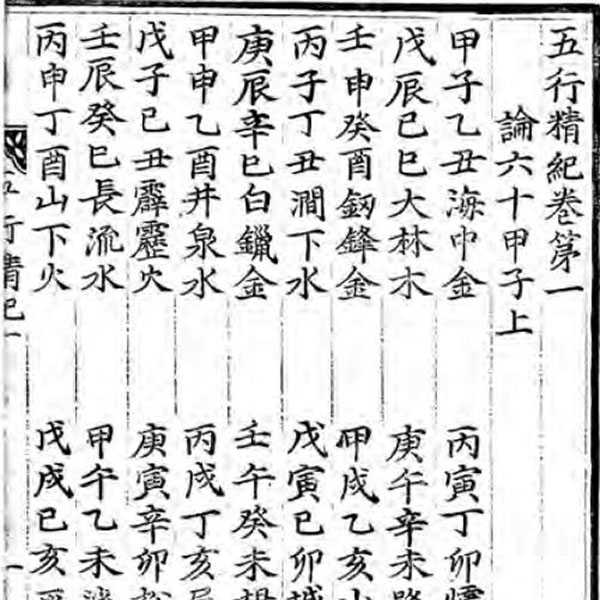 五行精紀卷第一
論六十甲子上
甲子乙丑海中金 丙寅丁卯
戊辰己巳大林木 庚午辛未
壬申癸酉釰鋒金 甲戌乙亥
丙子丁丑澗下水 戊寅己卯
庚辰辛巳白鑞金 壬午癸未
甲申乙酉井泉水 丙戌丁亥
戊子己丑霹靂火 庚寅辛卯
壬辰癸巳長流水 甲午乙未
丙申丁酉山下火 戊戌己亥